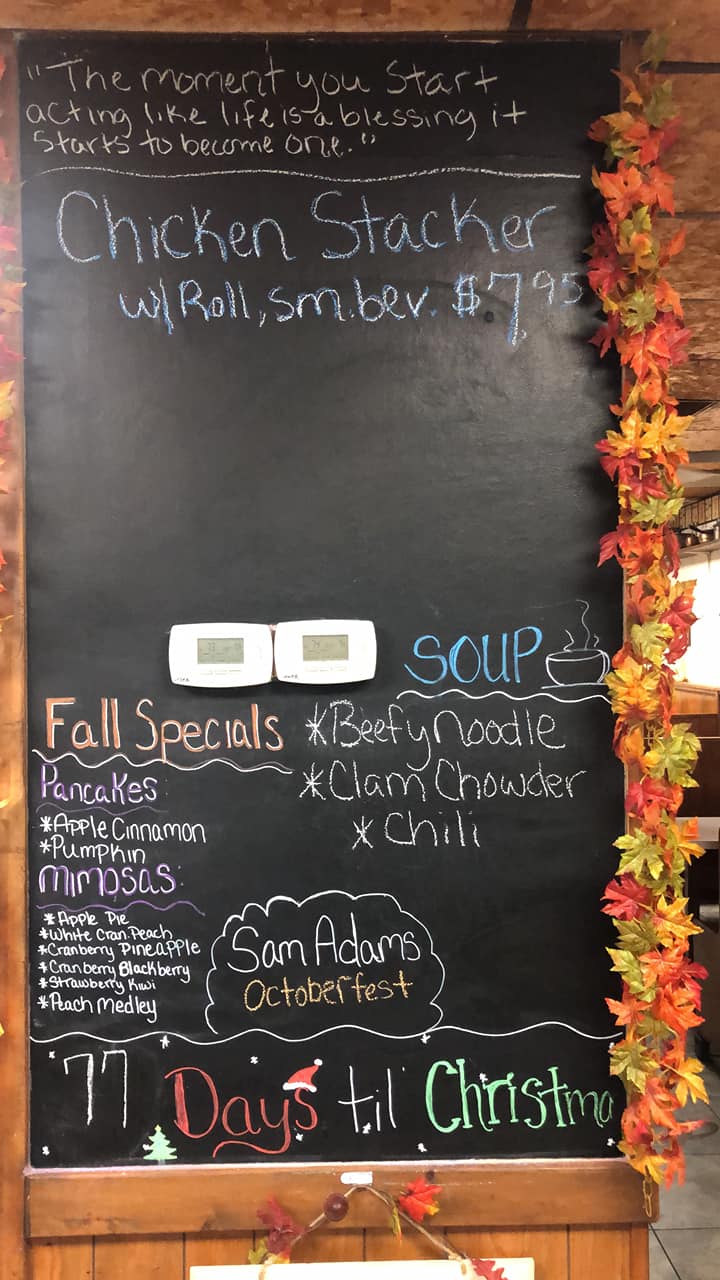 "The moment you start
acting like life is a blessing it
starts to become one."
Chicken Stacker
w/ Roll, sm. bev. $7.95
SOUP
*Beefy Noodle
*Clam Chowder
*Chili
Fall Specials
Pancakes:
*Apple Cinnamon
*Pumpkin
Mimosas:
*Apple Pie
*White Cran. Peach
*Cranberry Pineapple
*Cranberry Blackberry
*Strawberry Kiwi
*Peach Medley
Sam Adams
Octoberfest
77 Days til' Christma